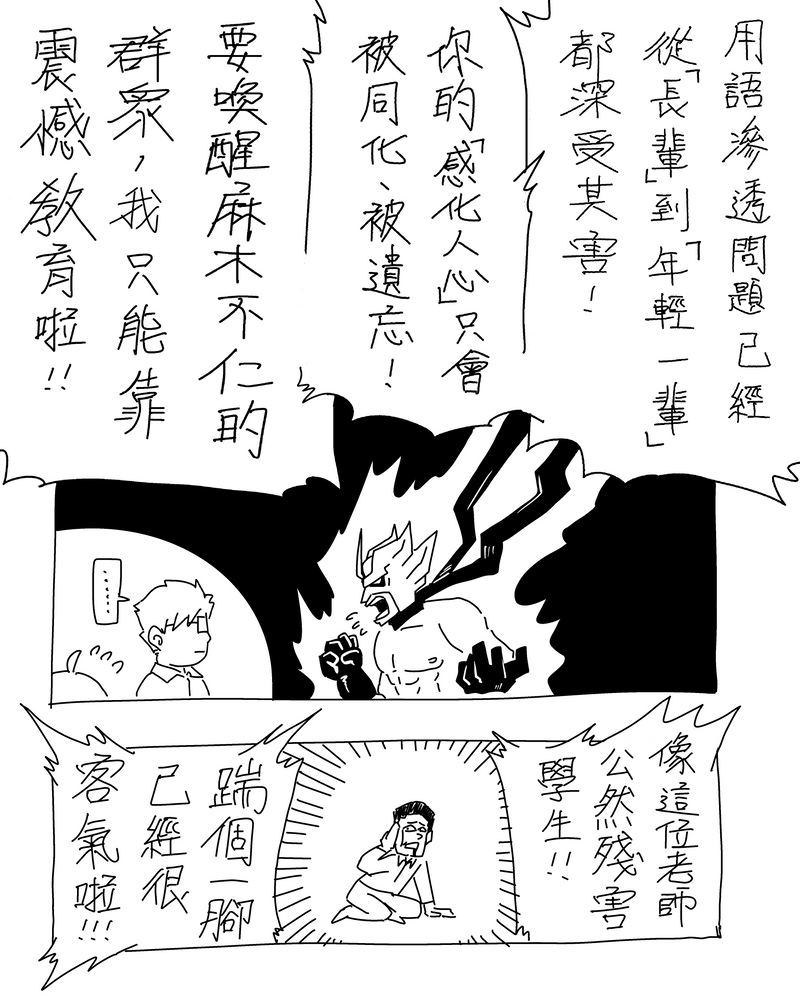 用語滲透問題已經
從「長輩」到「年輕一輩」
都深受其害!
你的「感化人心」只會
被同化、被遺忘!
要喚醒麻木不仁的
群眾,我只能靠
震憾教育啦!!
......
像這位老師
公然殘害
學生!!
踹個一腳
已經很
客氣啦!!!